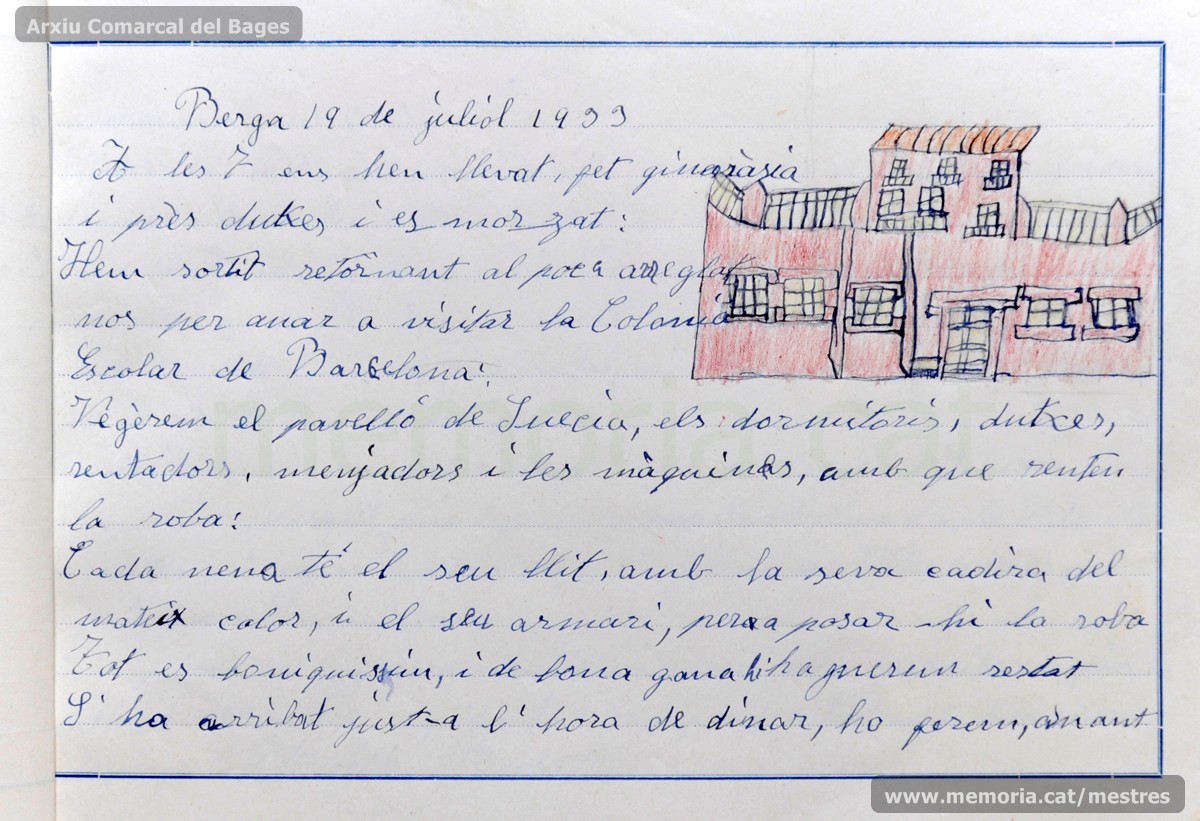 Arxiu Comarcal del Bages
Berga 19 de juliol 1933
A les 7 ens hem llevat, fet ginaràsia
i près dutxes i es mor zat:
Hem sortit retornant al poca arreglat
nos per anar a visitar la Colonia
Escolar de Barcelona:
Végèrem el pavelló de Suecia, els dormitoris, dutxes,
rentadors, menjadors i les màquines, amb que renten
la roba:
Cada nena té el seu llit, amb la seva cadira del
mateix color, i el seu armari, per a posar-hi la roba
Tot es boniquissim, i de bona gana hi haguerem restat
S'ha arribat just-a l'hora de dinar, ho ferem, anant
memoria.cat
www.memoria.cat/mestres